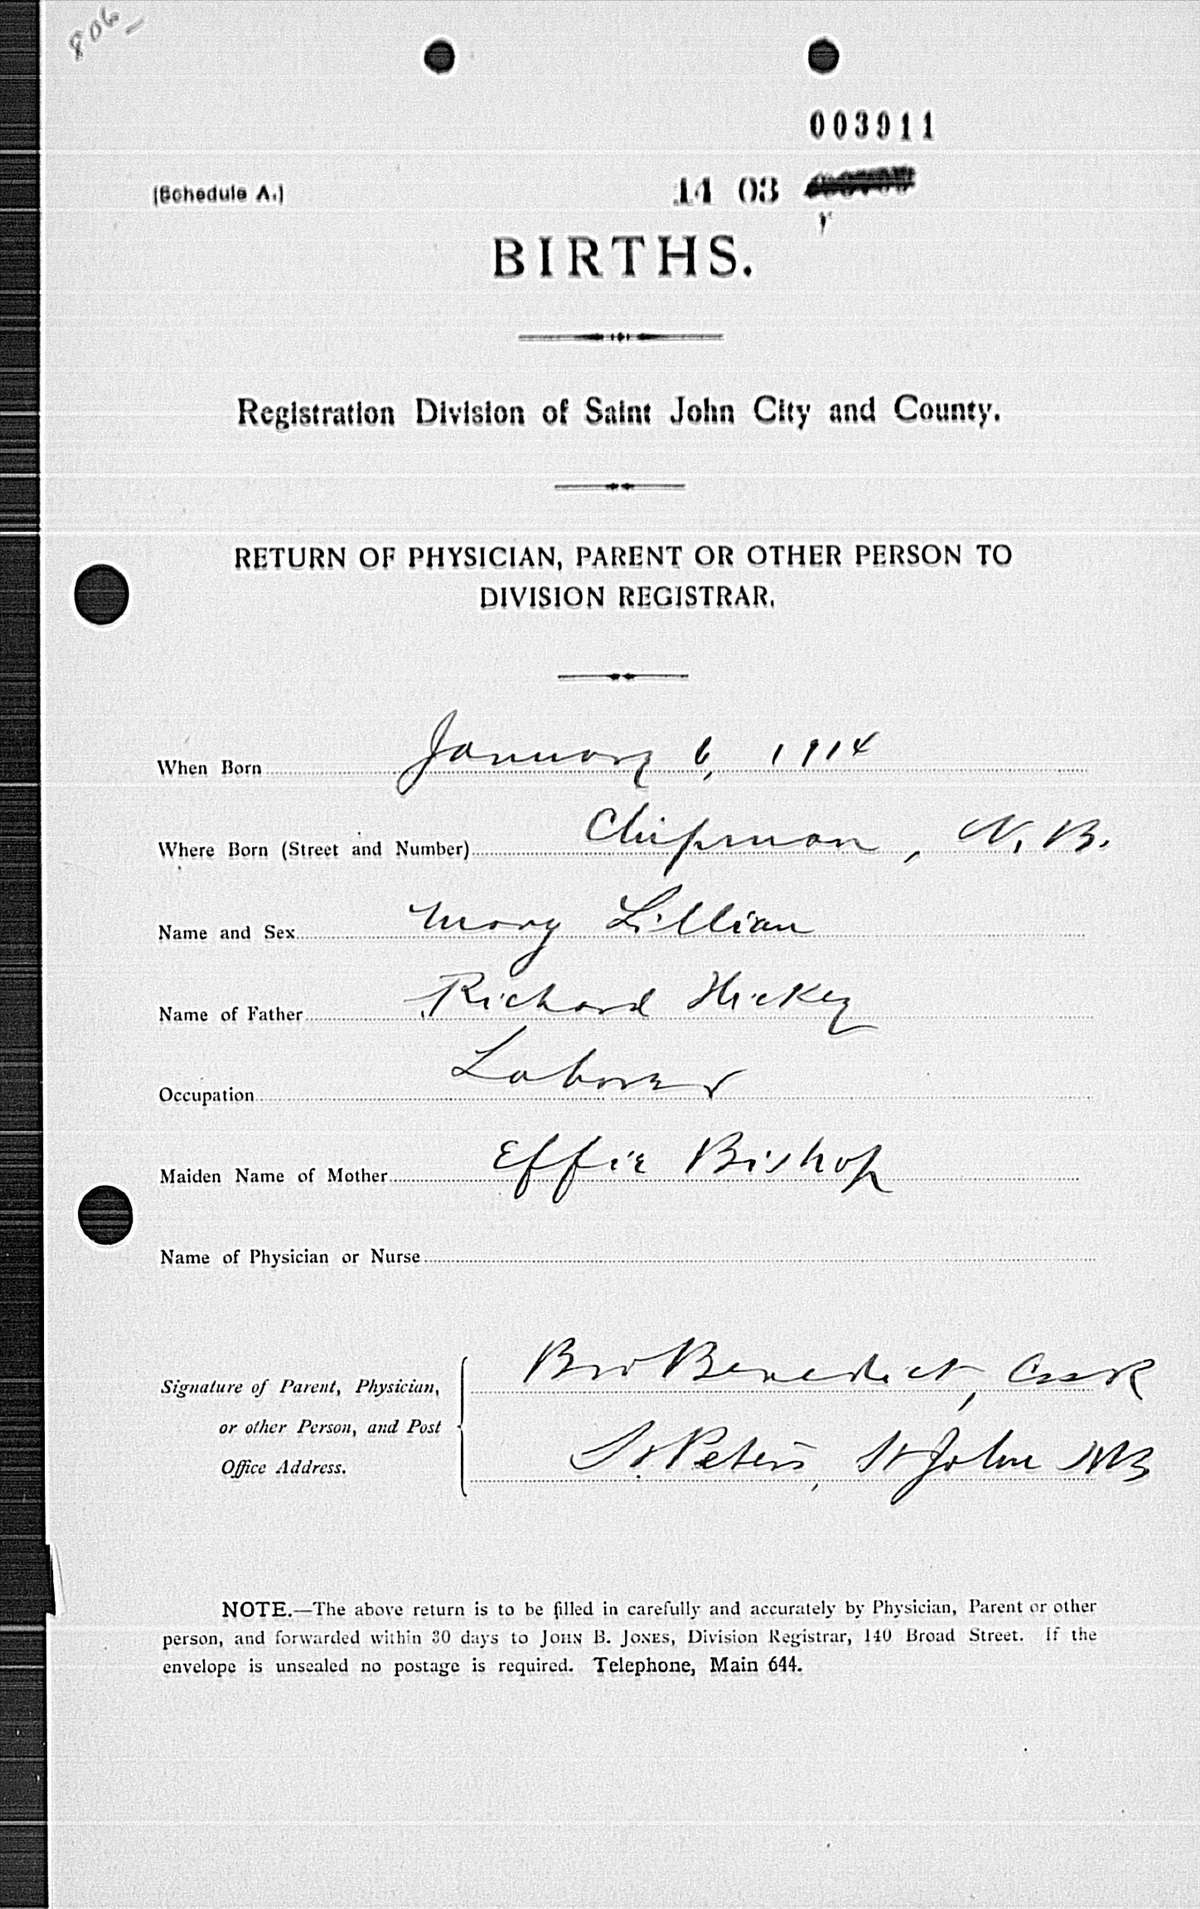 806-
003911
14 03
(Schedule A.)
BIRTHS.
Registration Division of Saint John City and County.
RETURN OF PHYSICIAN, PARENT OR OTHER PERSON TO
DIVISION REGISTRAR.
When Born January 6, 1914
Where Born (Street and Number) Chipman, N. B.
Name and Sex Mary Lillian
Name of Father Richard Hickey
Occupation Laborer
Maiden Name of Mother Effie Bishop
Name of Physician or Nurse
Signature of Parent, Physician, Bro Benedict, CSSR
or other Person, and Post
Office Address. St Peters, St John NB
NOTE.—The above return is to be filled in carefully and accurately by Physician, Parent or other
person, and forwarded within 30 days to JOHN B. JONES, Division Registrar, 140 Broad Street. If the
envelope is unsealed no postage is required. Telephone, Main 644.